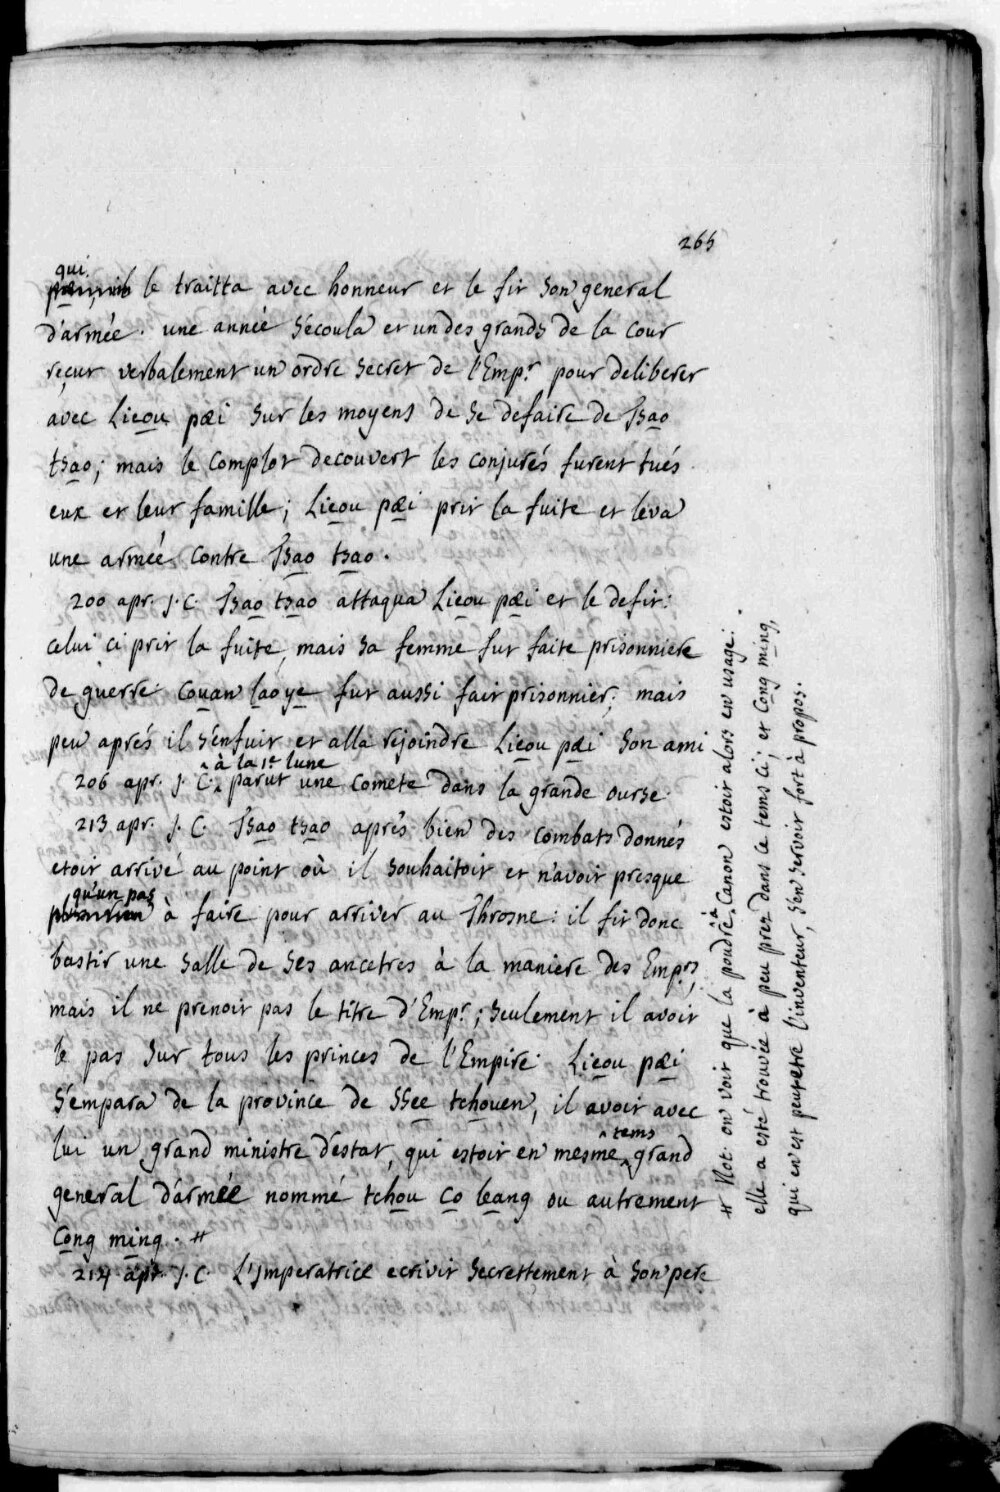 265
qui
le traitta avec honneur et le fit son general
d'armée. une année s'écoula et un des grands de la cour
reçut verbalement un ordre secret de l'Emp.r pour deliberer
avec Lieou pæi sur les moyens de se defaire de Tsao
tsao; mais le complot decouvert les conjurés furent tués
eux et leur famille; Lieou pæi prit la fuite et leva
une armée contre Tsao tsao.
200 apr. J.C. Tsao tsao attaqua Lieou pæi et le defit:
celui ci prit la fuite, mais sa femme fut faite prisonniere
de guerre. Couan lao ye fut aussi fait prisonnier; mais
peu aprés il s'enfuit et alla rejoindre Lieou pæi son ami
à la 1e lune
206 apr. J.C. parut une comete dans la grande ourse.
213 apr. J.C. Tsao tsao aprés bien des combats donnés
etoit arrivé au point où il souhaitoit et n'avoit presque
qu'un pas
à faire pour arriver au Throsne: il fit donc
bastir une salle de ses ancetres à la maniere des Emp.rs;
mais il ne prenoit pas le titre d'Emp.r; seulement il avoit
le pas sur tous les princes de l'Empire. Lieou pæi
s'empara de la province de SSee tchouen, il avoit avec
tems
lui un grand ministre d'estat, qui estoit en mesme grand
general d'armée nommé tchou co leang ou autrement
Cong ming. #
214 apr. J.C. L'Imperatrice ecrivit secrettement à son pere
# Not. on voit que la poudre à Canon estoit alors en usage.
elle a esté trouvée à peu prez dans ce tems ci; et Cong ming,
qui en est peutetre l'inventeur, s'en servoit fort à propos.